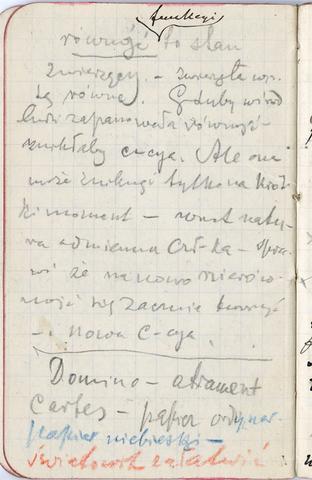 równość to stan
zwierzęcy. – zwierzęta np.
są równe. Gdyby wśród
ludzi zapanowała równość
znikłaby c-cja. Ale ona
może zniknąć tylko na krót
ki moment – wnet natu-
ra odmienna czł-ka – spra-
wi że na nowo nierów-
ność się zacznie tworzyć
– i nowa c-cja.
Domino – atrament
Cartes – papier ordynar-
papier niebieski –
załatwić